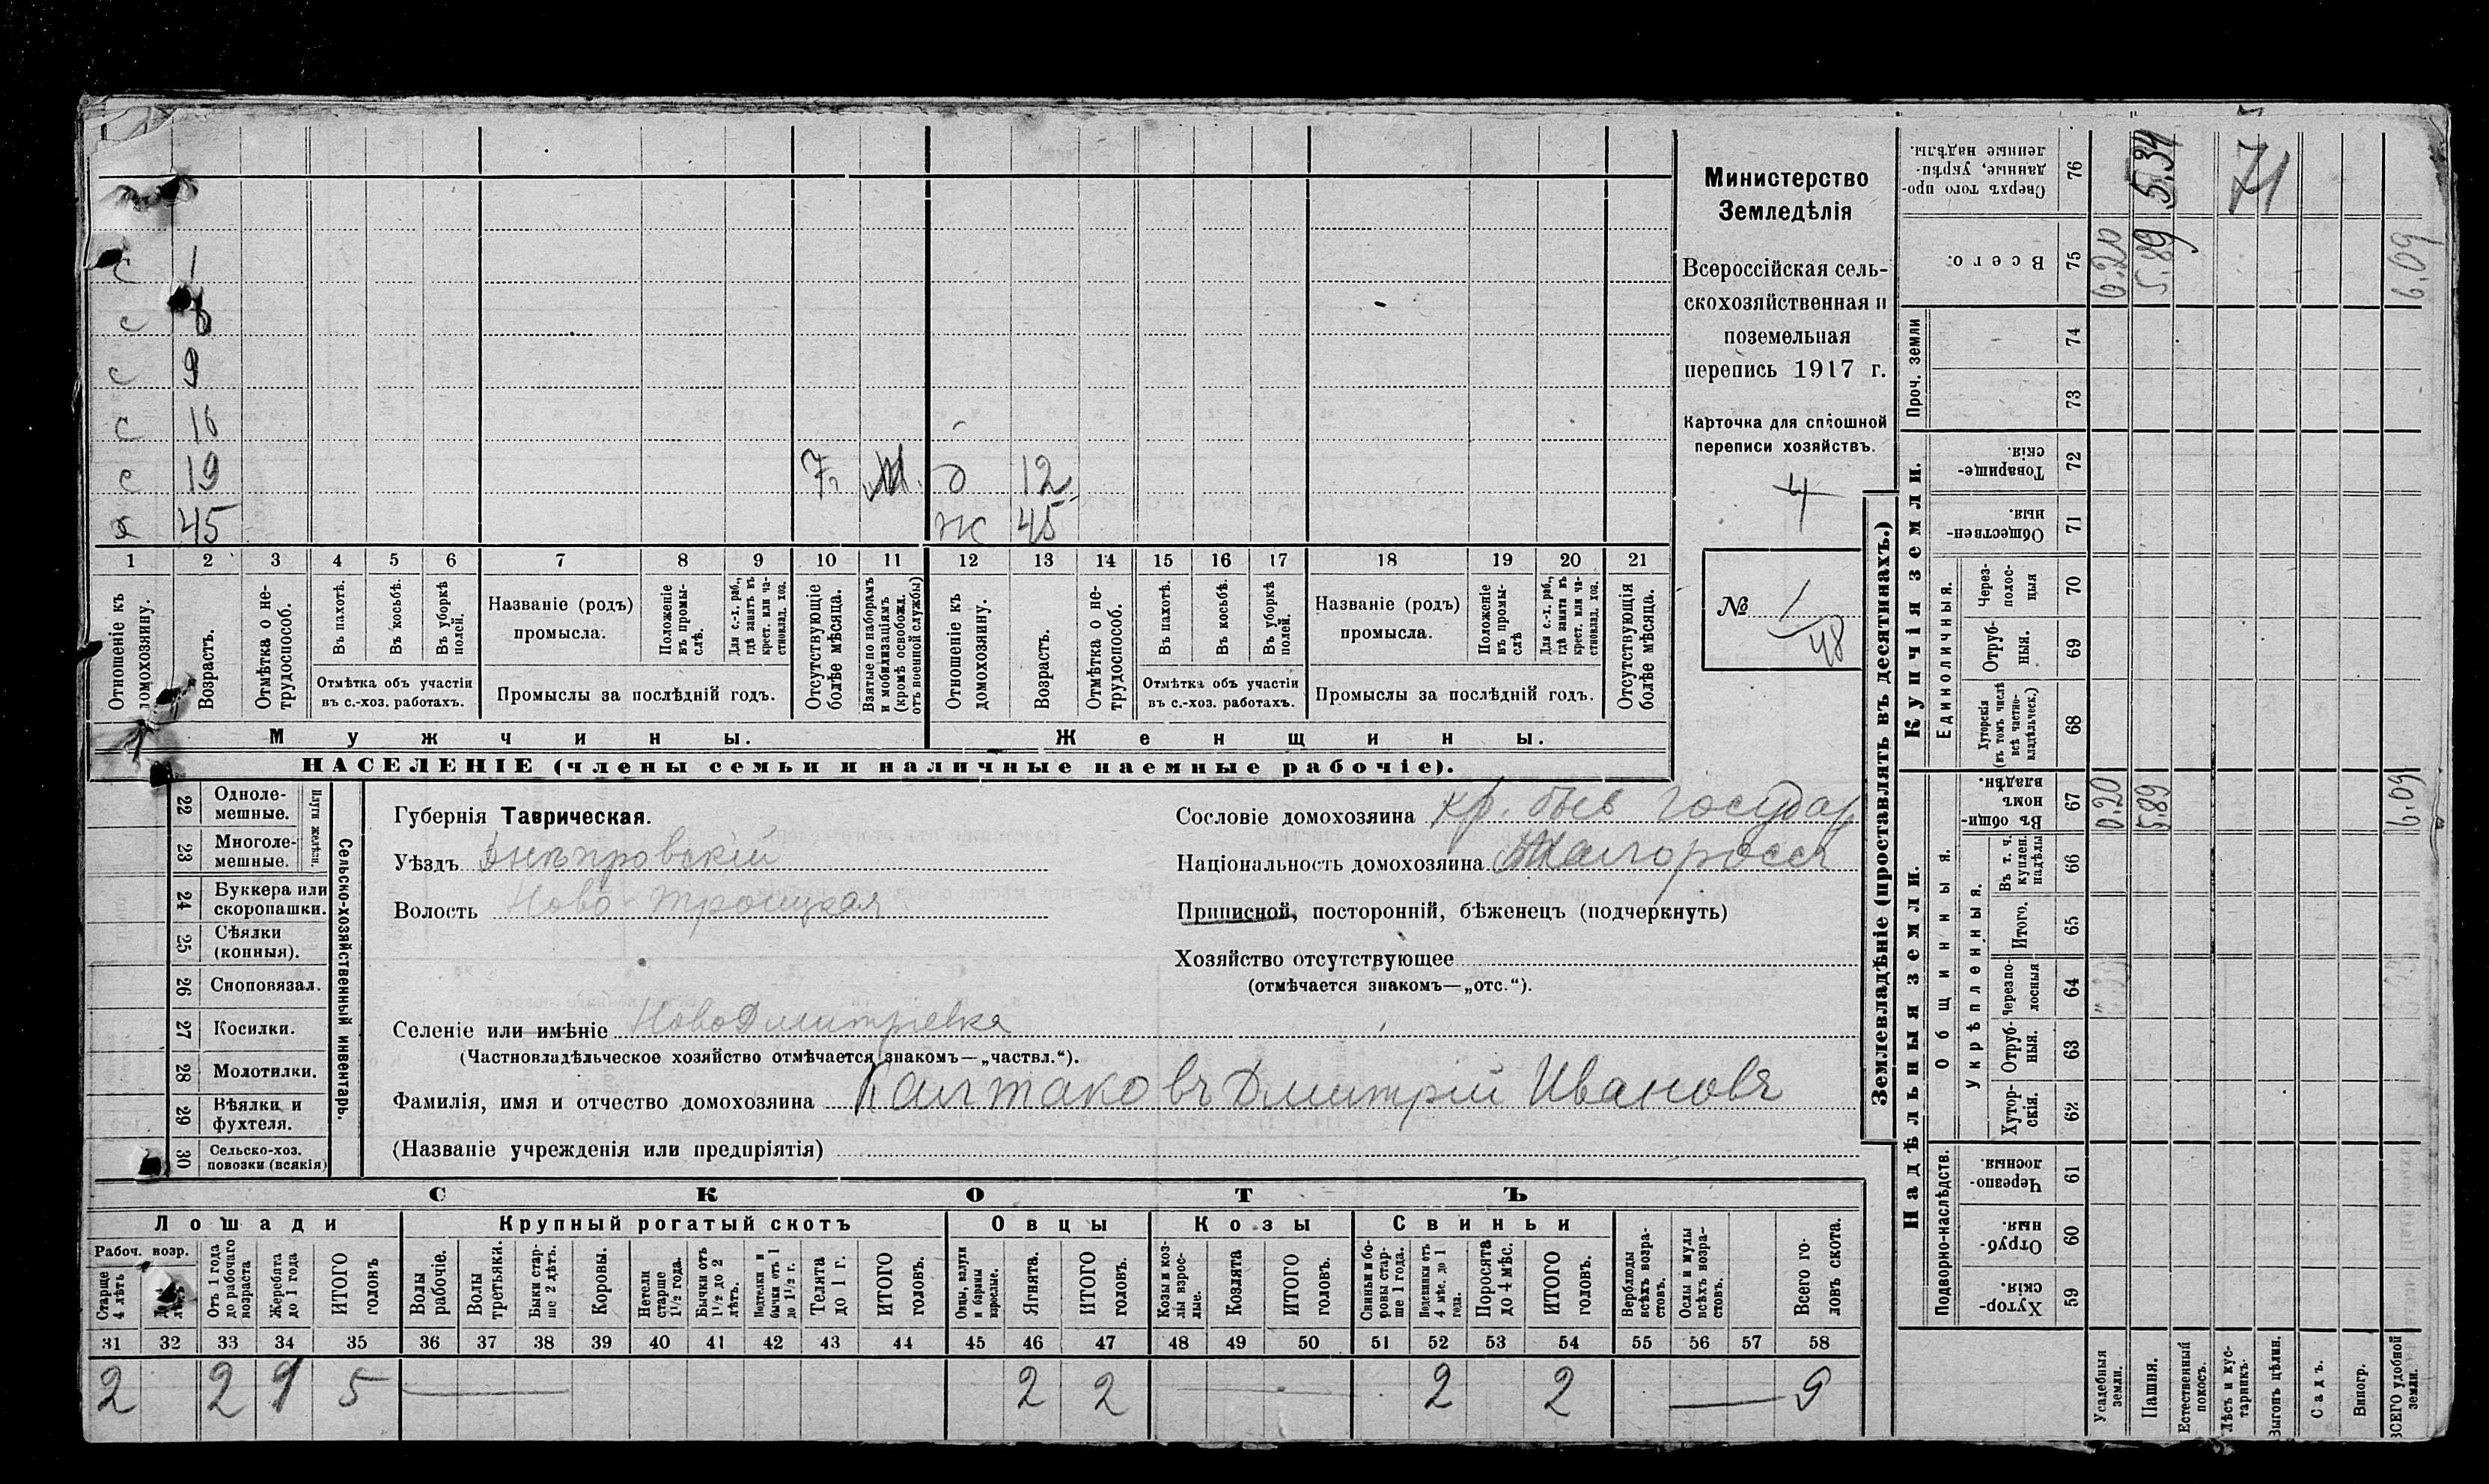 Министерство
Земледѣлія
Всероссійская сель-
скохозяйственная и
поземельная
перепись 1917 г.
Карточка для сплошной
переписи хозяйствъ.
4
№ 1
48
с 1
с 8
с 9
с 16
с 19 д 12
х 45 ж 45
1 2 3 4 5 6 7 8 9 10 11 12 13 14 15 16 17 18 19 20 21
Отношеніе къ домохозяину.
Возрастъ.
Отмѣтка о не-трудоспособ.
Въ пахотѣ.
Въ косьбѣ.
Въ уборкѣ полей.
Отмѣтка объ участіи
въ с.-хоз. работахъ.
Названіе (родъ)
промысла.
Положеніе въ промы-слѣ.
Для с.-х. раб., гдѣ занятъ въ крест. или ча-стновлад. хоз.
Промыслы за послѣдній годъ.
Отсутствующіе болѣе мѣсяца.
Взятые по наборамъ и мобилизаціямъ (кромѣ освобожд. отъ военной службы)
Отношеніе къ домохозяину.
Возрастъ.
Отмѣтка о не-трудоспособ.
Въ пахотѣ.
Въ косьбѣ.
Въ уборкѣ полей.
Отмѣтка объ участіи
въ с.-хоз. работахъ.
Названіе (родъ)
промысла.
Положеніе въ промы-слѣ
Для с.-х. раб., гдѣ занята въ крест. или ча-стновлад. хоз.
Промыслы за послѣдній годъ.
Отсутствующія болѣе мѣсяца.
Мужчины. Женщины.
НАСЕЛЕНІЕ (члены семьи и наличные наемные рабочіе).
22 Одноле-мешные.
23 Многоле-мешные.
Плуги желѣзн.
24 Буккера или скоропашки.
25 Сѣялки (конныя).
26 Сноповязал.
27 Косилки.
28 Молотилки.
29 Вѣялки и фухтеля.
30 Сельско-хоз. повозки (всякія)
Сельско-хозяйственный инвентарь.
Губернія Таврическая.
Уѣздъ Днѣпровскій
Волость Ново-Троицкая
Селеніе или имѣніе НовоДмитріевка
(Частновладѣльческое хозяйство отмѣчается знакомъ—„частвл.“).
Фамилія, имя и отчество домохозяина Калтаковъ Дмитрій Ивановъ
(Названіе учрежденія или предпріятія)
Сословіе домохозяина кр. быв государ
Національность домохозяина Малороссъ
Приписной, посторонній, бѣженец (подчеркнуть)
Хозяйство отсутствующее
(отмѣчается знакомъ—„отс.“).
СКОТЪ
Лошади Крупный рогатый скотъ Овцы Козы Свиньи
Рабоч. возр.
Старше 4 лѣтъ
Отъ 1 года до рабочаго возраста
Жеребята до 1 года
ИТОГО головъ
Волы рабочіе.
Волы третьяки.
Быки стар-ше 2 лѣтъ.
Коровы.
Нетели старше 1½ года.
Бычки отъ 1½ до 2 лѣтъ.
Подтелки и бычки отъ 1 до 1½ г.
Телята до 1 г.
ИТОГО головъ.
Овцы, валухи и бараны взрослые.
Ягнята.
ИТОГО головъ.
Козы и коз-лы взрос-лые.
Козлята
ИТОГО головъ.
Свиньи и бо-ровы стар-ше 1 года.
Подсвинки отъ 4 мѣс. до 1 года.
Поросята до 4 мѣс.
ИТОГО головъ.
Верблюды всѣхъ возра-стовъ.
Ослы и мулы всѣхъ возра-стовъ.
Всего го-ловъ скота.
31 32 33 34 35 36 37 38 39 40 41 42 43 44 45 46 47 48 49 50 51 52 53 54 55 56 57 58
2 2 1 5 — 2 2 — 2 2 — 9
Землевладѣніе (проставлять въ десятинахъ.)
76 Сверхъ того про-данные, укрѣп-ленные надѣлы. 5.34 71
75 Всего. 0.20 5.89 6.09
Купчія земли.
Проч. земли
74
73
72 Товарище-скія.
71 Обществен-ныя.
Единоличныя.
70 Через-полос-ныя
69 Отруб-ныя.
68 Хуторскія (въ томъ числѣ всѣ частно-владѣльческ.)
Надѣльныя земли.
Общинныя.
67 Въ общи-номъ владѣн. 0.20 5.89 6.09
Укрѣпленныя.
66 Въ т. ч. куплен. надѣлы
65 Итого.
64 Черезпо-лосныя
63 Отруб-ныя.
62 Хутор-скія.
Подворно-наслѣдств.
61 Черезпо-лосныя.
60 Отруб-ныя.
59 Хутор-скія.
Усадебныя земли.
Пашня.
Естественный покосъ.
Лѣсъ и кус-тарникъ.
Выгонъ цѣлин.
Садъ.
Виногр.
ВСЕГО удобной земли.